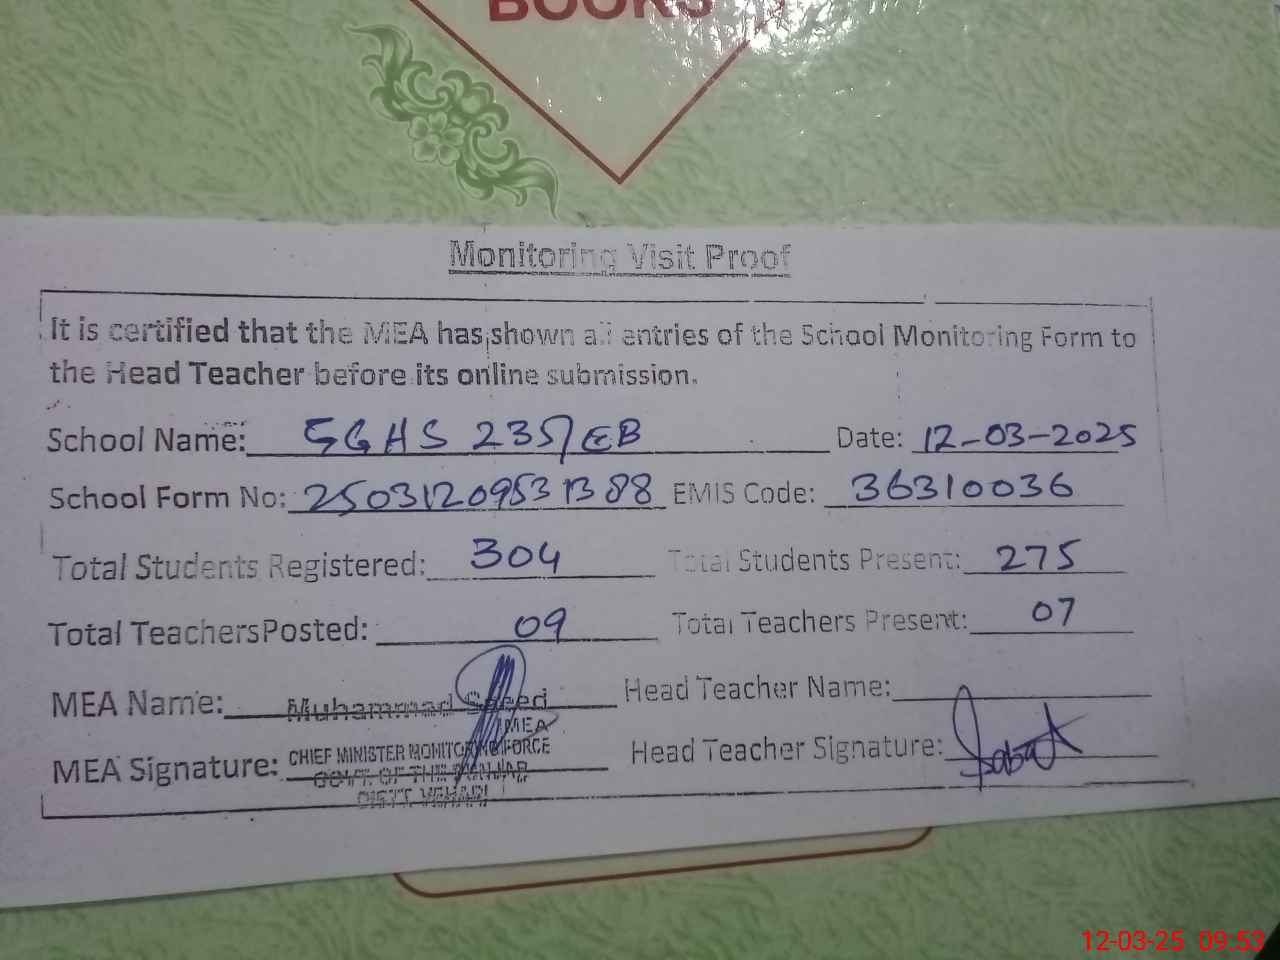 BOOKS
Monitoring Visit Proof
It is certified that the MEA has shown all entries of the School Monitoring Form to
the Head Teacher before its online submission.
School Name: GGHS 235/EB Date: 12-03-2025
School Form No: 25031209531388 EMIS Code: 36310036
Total Students Registered: 304 Total Students Present: 275
Total TeachersPosted: 09 Total Teachers Present: 07
MEA Name: Muhammad Saeed Head Teacher Name:
MEA
MEA Signature: CHIEF MINISTER MONITORING FORCE Head Teacher Signature:
GOVT. OF THE PUNJAB
DISTT. VEHARI
12-03-25 09:53